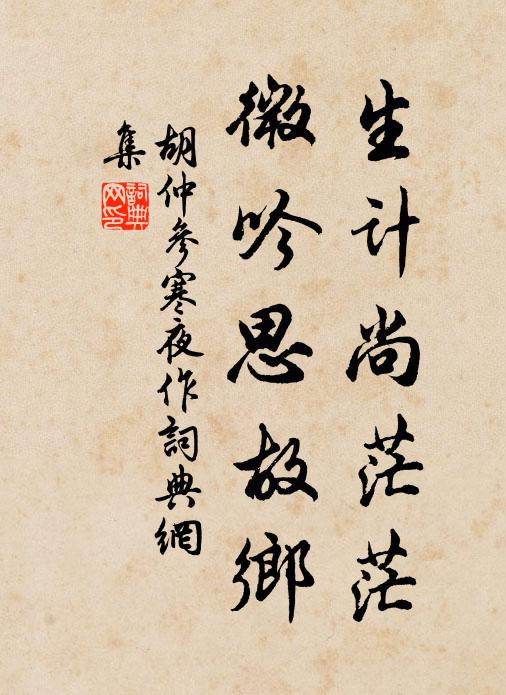 生计尚茫茫
微吟思故鄉
胡仲參寒夜作詞典網
集
詞典网印